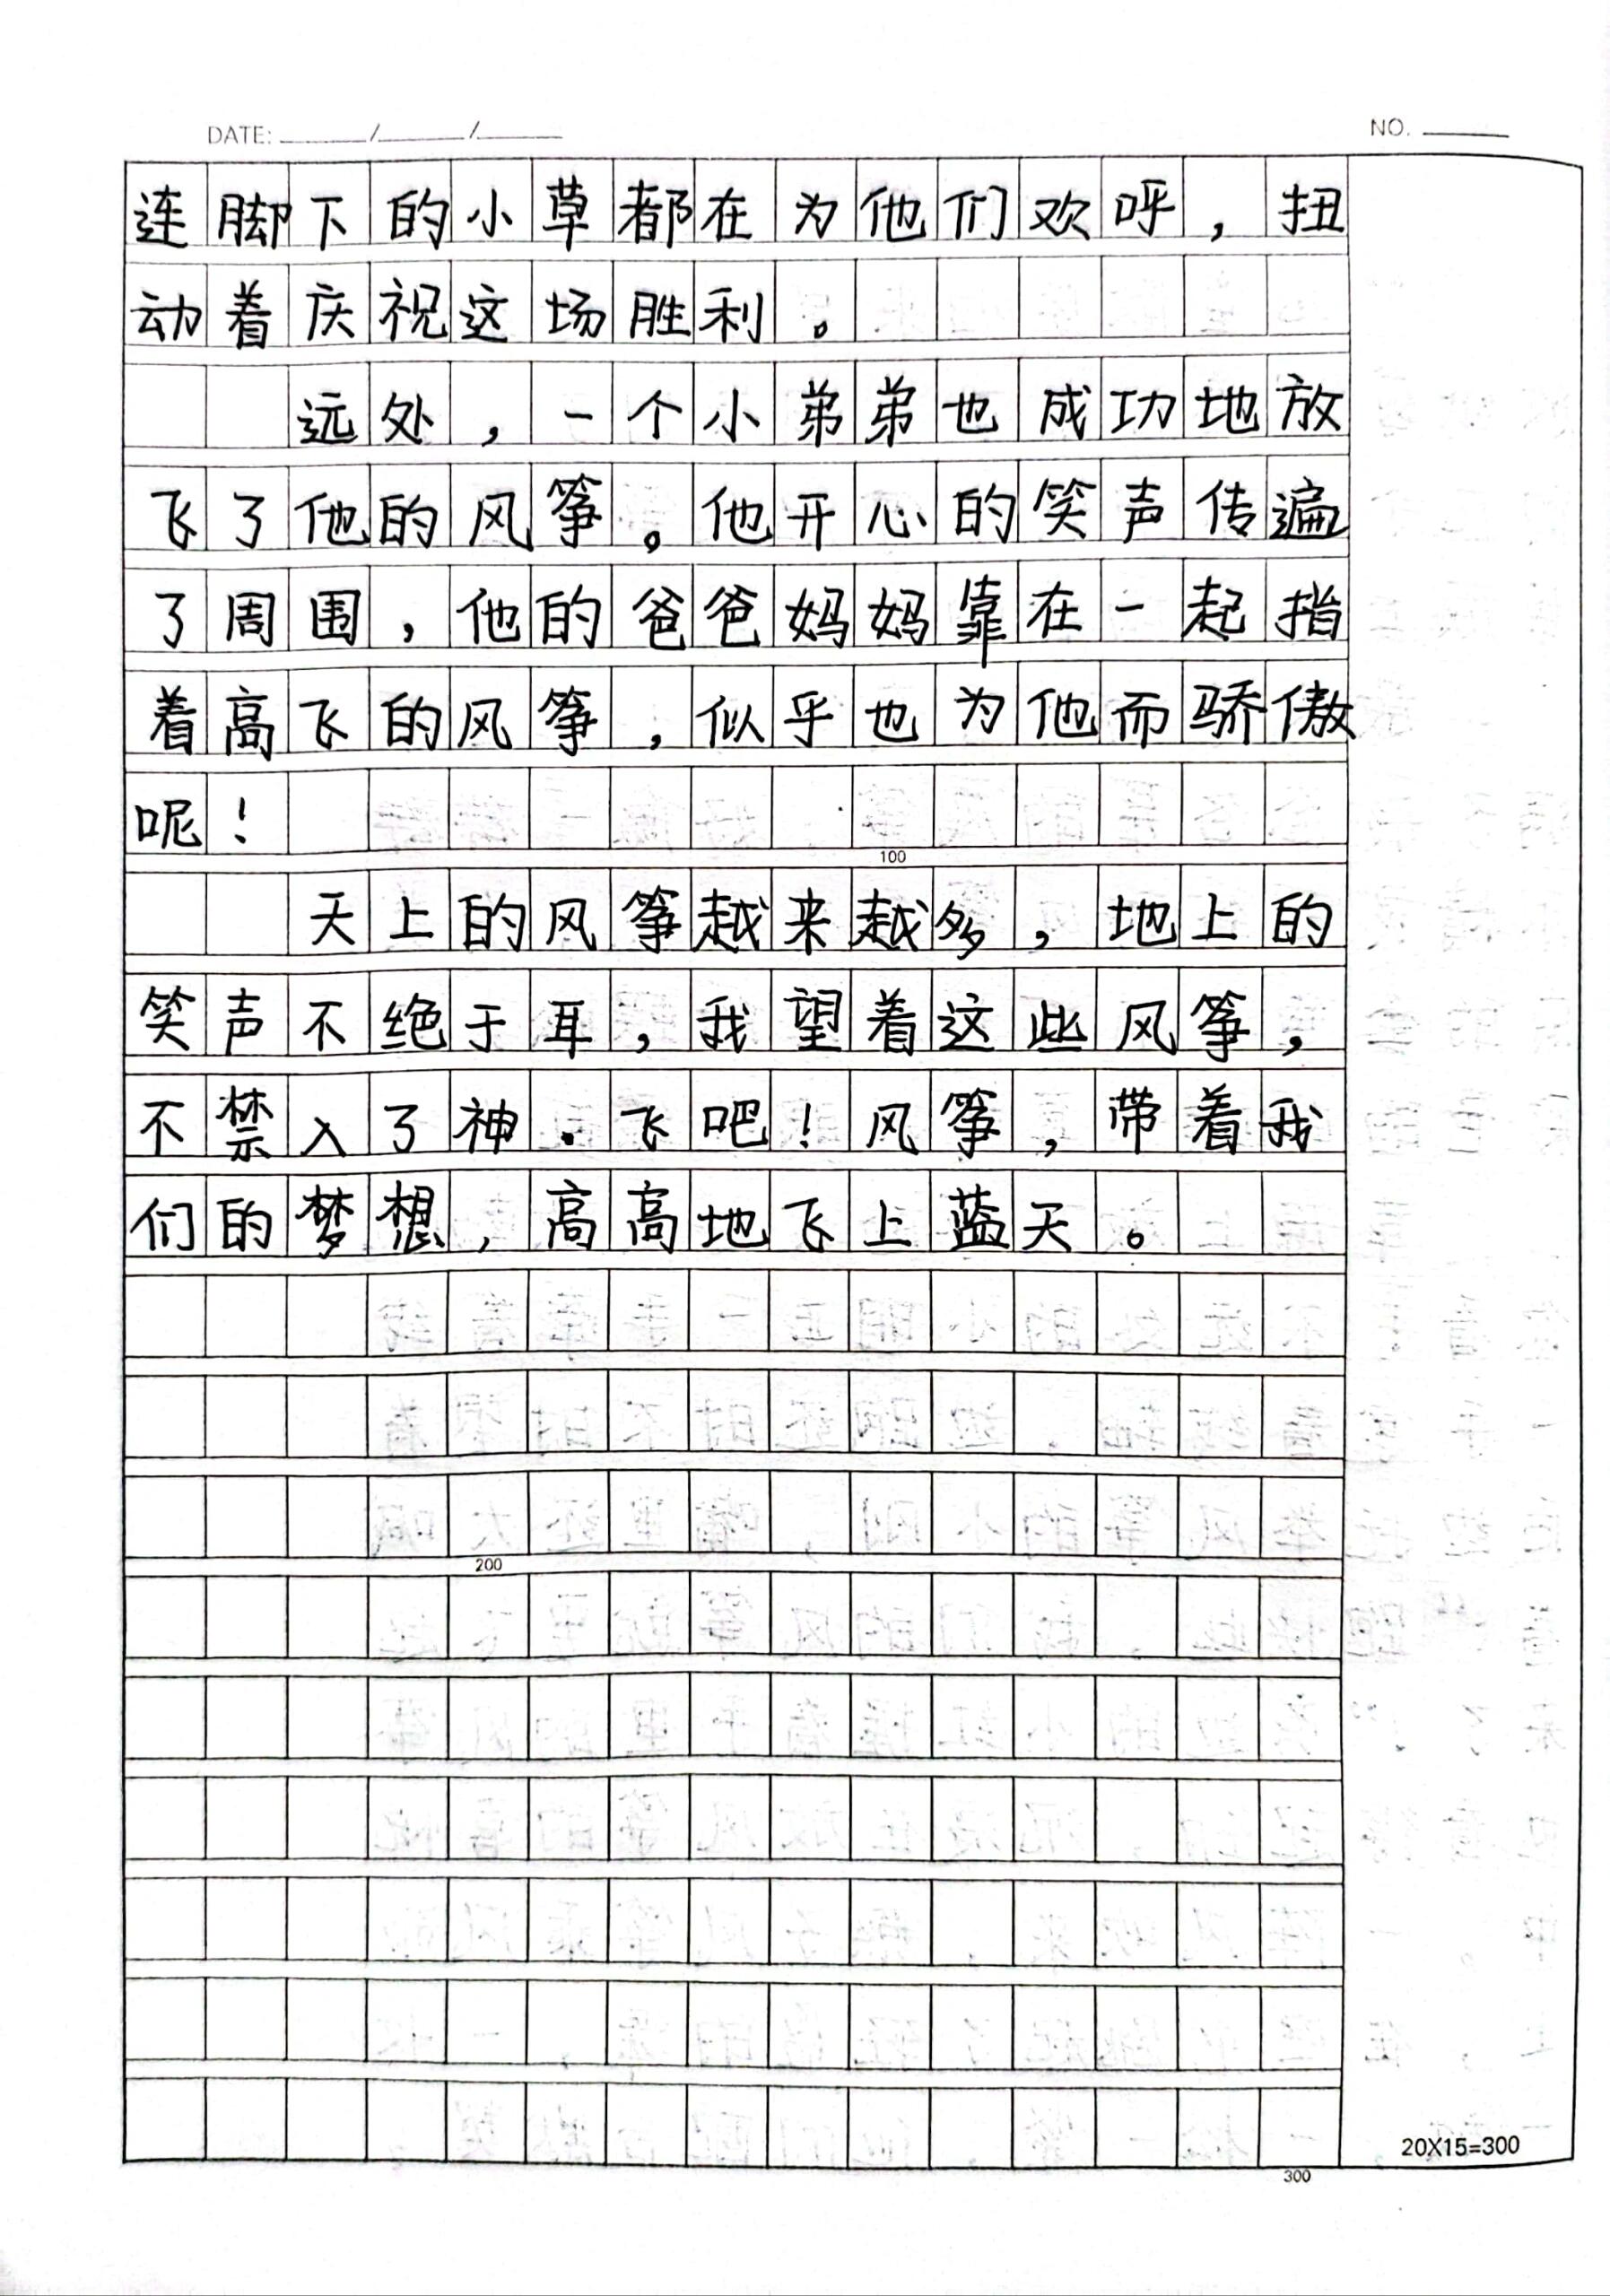 DATE: ____/____/____ NO. ____
连脚下的小草都在为他们欢呼，扭
动着庆祝这场胜利。
远处，一个小弟弟也成功地放
飞了他的风筝。他开心的笑声传遍
了周围，他的爸爸妈妈靠在一起指
着高飞的风筝，似乎也为他而骄傲
呢！
100
天上的风筝越来越多，地上的
笑声不绝于耳，我望着这些风筝，
不禁入了神。飞吧！风筝，带着我
们的梦想，高高地飞上蓝天。
200
20X15=300
300